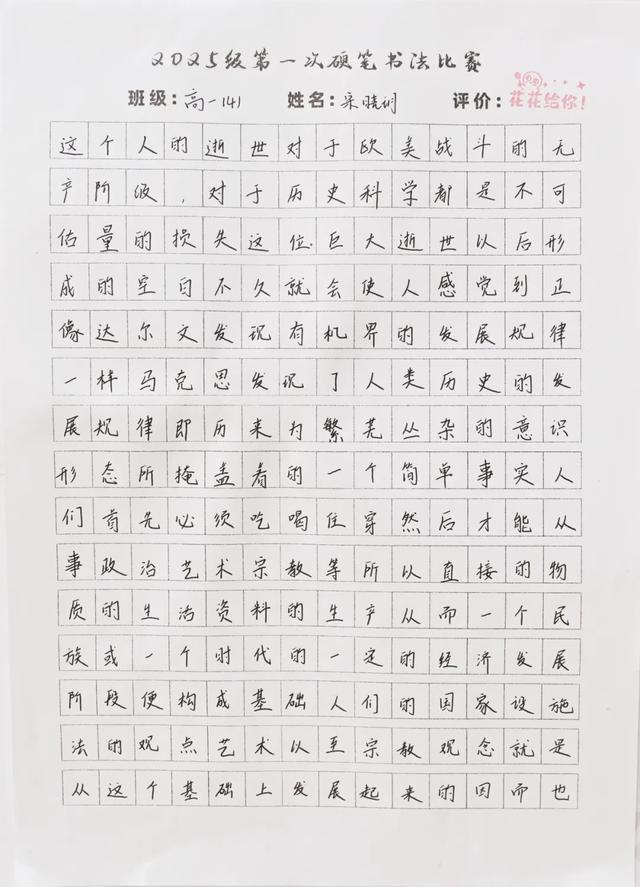 2025级第一次硬笔书法比赛
班级：高一141 姓名：宋晓钥 评价：花花给你！
这个人的逝世对于欧美战斗的无
产阶级，对于历史科学都是不可
估量的损失这位巨大逝世以后形
成的空白不久就会使人感觉到正
像达尔文发现有机界的发展规律
一样马克思发现了人类历史的发
展规律即历来为繁芜丛杂的意识
形态所掩盖着的一个简单事实人
们首先必须吃喝住穿然后才能从
事政治艺术宗教等所以直接的物
质的生活资料的生产从而一个民
族或一个时代的一定的经济发展
阶段便构成基础人们的国家设施
法的观点艺术以至宗教观念就是
从这个基础上发展起来的因而也